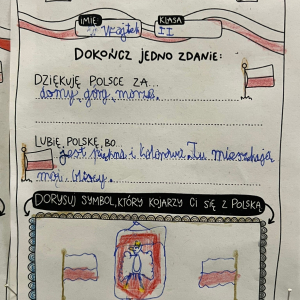 IMIĘ
Wojtek
KLASA
II
DOKOŃCZ JEDNO ZDANIE:
DZIĘKUJĘ POLSCE ZA...
domy góry morze.
LUBIĘ POLSKĘ, BO...
jest piękna i kolorowa. Tu mieszkają
moi bliscy.
DORYSUJ SYMBOL, KTÓRY KOJARZY CI SIĘ Z POLSKĄ